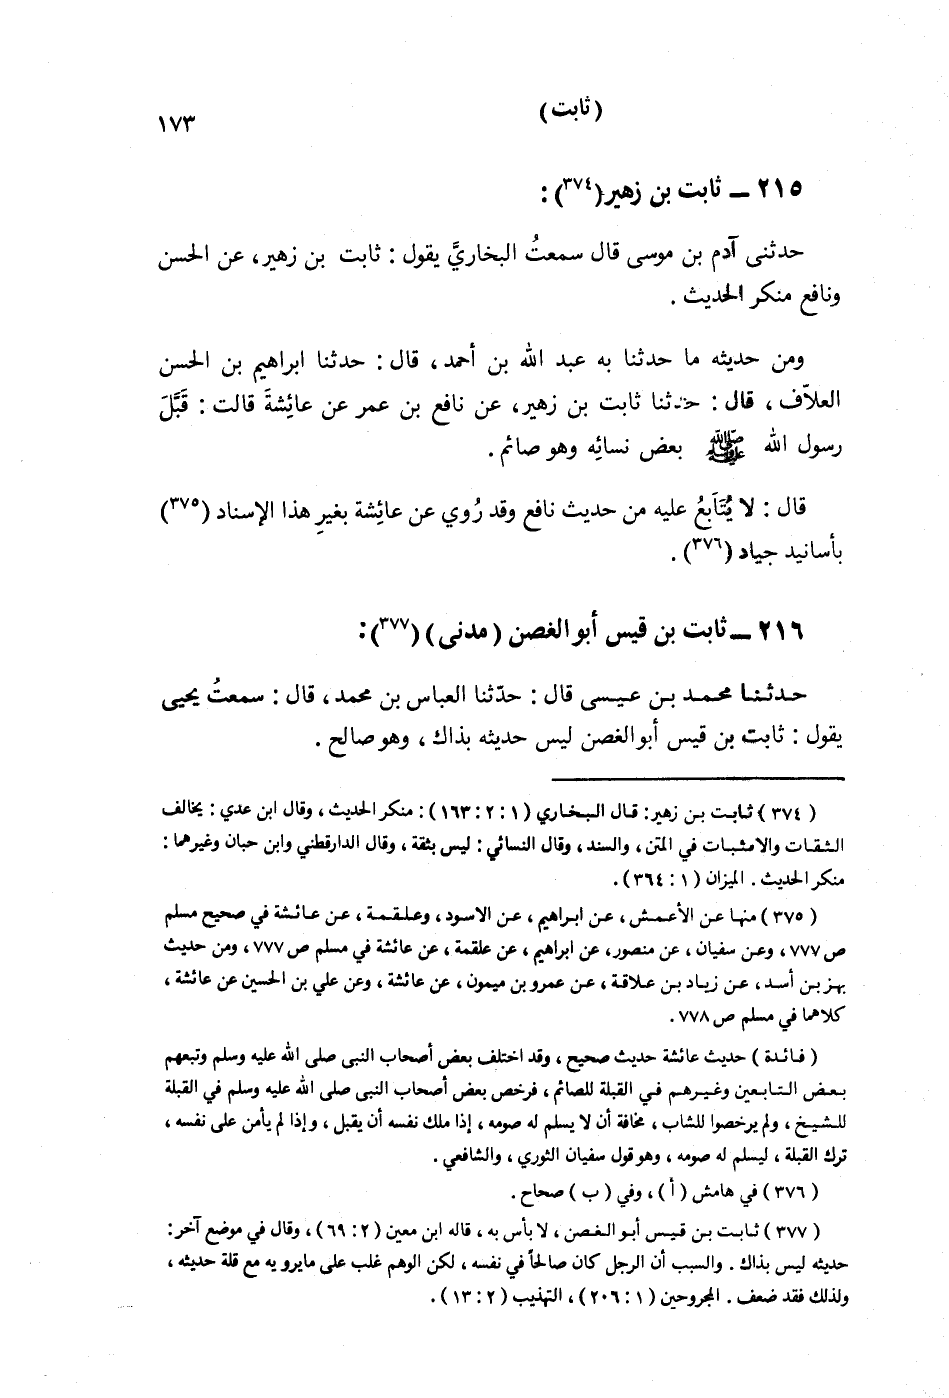 (ثابت)
١٧٣
٢١٥ ــ ثابت بن زهير(٣٧٤):
حدثنى آدم بن موسى قال سمعتُ البخاريَّ يقول : ثابت بن زهير، عن الحسن
ونافع منكر الحديث .
ومن حديثه ما حدثنا به عبد الله بن أحمد، قال : حدثنا ابراهيم بن الحسن
العلاّف ، قال : حدثنا ثابت بن زهير، عن نافع بن عمر عن عائِشةَ قالت : قَبَّلَ
رسول الله ﷺ بعض نسائِه وهو صائم .
قال : لا يُتَابَعُ عليه من حديث نافع وقد رُوي عن عائِشة بغيرِ هذا الإسناد (٣٧٥)
بأسانيد جياد (٣٧٦) .
٢١٦ ــ ثابت بن قيس أبو الغصن (مدنى) (٣٧٧):
حدثنا محمد بن عيسى قال : حدّثنا العباس بن محمد، قال : سمعتُ يحيى
يقول : ثابت بن قيس أبو الغصن ليس حديثه بذاك ، وهو صالح .
(٣٧٤) ثابت بن زهير: قال البخاري (١ : ٢ : ١٦٣): منكر الحديث ، وقال ابن عدي : يخالف
الثقات والامثبات في المتن ، والسند ، وقال النسائي : ليس بثقة ، وقال الدارقطني وابن حبان وغيرهما :
منكر الحديث . الميزان (١ : ٣٦٤).
(٣٧٥) منها عن الأعمش ، عن ابراهيم ، عن الاسود ، وعلقمة ، عن عائشة في صحيح مسلم
ص ٧٧٧ ، وعن سفيان ، عن منصور، عن ابراهيم ، عن علقمة ، عن عائشة في مسلم ص ٧٧٧ ، ومن حديث
بهز بن أسد ، عن زياد بن علاقة ، عن عمرو بن ميمون ، عن عائشة ، وعن علي بن الحسين عن عائشة ،
كلاهما في مسلم ص ٧٧٨ .
(فائدة) حديث عائشة حديث صحيح ، وقد اختلف بعض أصحاب النبى صلى الله عليه وسلم وتبعهم
بعض التابعين وغيرهم في القبلة للصائم ، فرخص بعض أصحاب النبى صلى الله عليه وسلم في القبلة
للشيخ ، ولم يرخصوا للشاب ، مخافة أن لا يسلم له صومه ، إذا ملك نفسه أن يقبل ، وإذا لم يأمن على نفسه ،
ترك القبلة ، ليسلم له صومه ، وهو قول سفيان الثوري ، والشافعي .
(٣٧٦) في هامش (أ) ، وفي (ب) صحاح .
(٣٧٧) ثابت بن قيس أبو الغصن ، لا بأس به ، قاله ابن معين (٢ : ٦٩) ، وقال في موضع آخر :
حديثه ليس بذاك . والسبب أن الرجل كان صالحاً في نفسه ، لكن الوهم غلب على مايرو يه مع قلة حديثه ،
ولذلك فقد ضعف . المجروحين (١ : ٢٠٦) ، التهذيب (٢ : ١٣) .